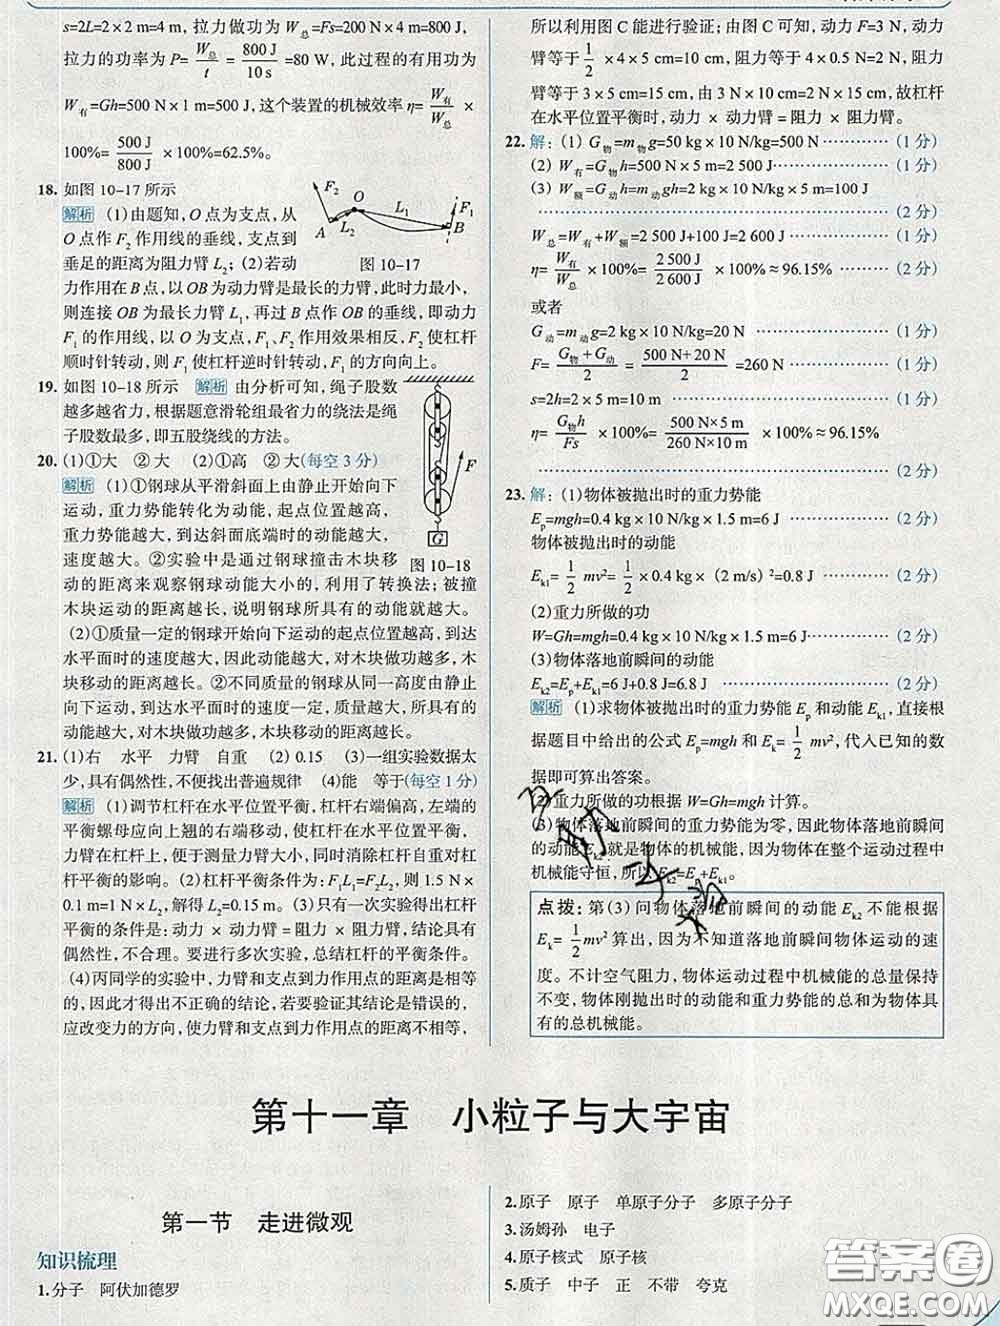 s=2L=2×2 m=4 m，拉力做功为 W总=Fs=200 N×4 m=800 J，
拉力的功率为 P=W总/t=800 J/10 s=80 W，此过程的有用功为
W有=Gh=500 N×1 m=500 J，这个装置的机械效率 η=W有/W总×
100%=500 J/800 J×100%=62.5%。
18. 如图 10-17 所示
解析 (1)由题知，O 点为支点，从
O 点作 F₂ 作用线的垂线，支点到
垂足的距离为阻力臂 L₂；(2)若动
F₂ O L₁ F₁ A L₂ B
图 10-17
力作用在 B 点，以 OB 为动力臂是最长的力臂，此时力最小，
则连接 OB 为最长力臂 L₁，再过 B 点作 OB 的垂线，即动力
F₁ 的作用线，以 O 为支点，F₁、F₂ 作用效果相反，F₂ 使杠杆
顺时针转动，则 F₁ 使杠杆逆时针转动，F₁ 的方向向上。
19. 如图 10-18 所示 解析 由分析可知，绳子股数
越多越省力，根据题意滑轮组最省力的绕法是绳
子股数最多，即五股绕线的方法。
20. (1)①大 ②大 (2)①高 ②大(每空 3 分)
解析 (1)①钢球从平滑斜面上由静止开始向下
运动，重力势能转化为动能，起点位置越高，
重力势能越大，到达斜面底端时的动能越大，
速度越大。②实验中是通过钢球撞击木块移
F
G
图 10-18
动的距离来观察钢球动能大小的，利用了转换法；被撞
木块运动的距离越长，说明钢球所具有的动能就越大。
(2)①质量一定的钢球开始向下运动的起点位置越高，到达
水平面时的速度越大，因此动能越大，对木块做功越多，木
块移动的距离越长。②不同质量的钢球从同一高度由静止
向下运动，到达水平面时的速度一定，质量越大，所具有的
动能越大，对木块做功越多，木块移动的距离越长。
21. (1)右 水平 力臂 自重 (2) 0.15 (3)一组实验数据太
少，具有偶然性，不便找出普遍规律 (4)能 等于(每空 1 分)
解析 (1)调节杠杆在水平位置平衡，杠杆右端偏高，左端的
平衡螺母应向上翘的右端移动，使杠杆在水平位置平衡，
力臂在杠杆上，便于测量力臂大小，同时消除杠杆自重对杠
杆平衡的影响。(2)杠杆平衡条件为：F₁L₁=F₂L₂，则 1.5 N×
0.1 m=1 N×L₂，解得 L₂=0.15 m。(3)只有一次实验得出杠杆
平衡的条件是：动力 × 动力臂=阻力 × 阻力臂，结论具有
偶然性，不合理。要进行多次实验，总结杠杆的平衡条件。
(4)丙同学的实验中，力臂和支点到力作用点的距离是相等
的，因此才得出不正确的结论，若要验证其结论是错误的，
应改变力的方向，使力臂和支点到力作用点的距离不相等，
所以利用图 C 能进行验证；由图 C 可知，动力 F=3 N，动力
臂等于 1/2 ×4×5 cm=10 cm，阻力等于 4×0.5 N=2 N，阻力
臂等于 3×5 cm=15 cm，由 3 N×10 cm=2 N×15 cm，故杠杆
在水平位置平衡时，动力 × 动力臂=阻力 × 阻力臂。
22. 解：(1) G物=m物g=50 kg×10 N/kg=500 N……(1 分)
(2) W有=G物h=500 N×5 m=2 500 J……(1 分)
(3) W额=G动h=m动gh=2 kg×10 N/kg×5 m=100 J
……(2 分)
W总=W有+W额=2 500 J+100 J=2 600 J……(1 分)
η=W有/W总×100%=2 500 J/2 600 J×100%≈96.15%……(2 分)
或者
G动=m动g=2 kg×10 N/kg=20 N……(1 分)
F=(G物+G动)/2=(500 N+20 N)/2=260 N……(1 分)
s=2h=2×5 m=10 m……(1 分)
η=G物h/Fs×100%=(500 N×5 m)/(260 N×10 m)×100%≈96.15%
……(2 分)
23. 解：(1)物体被抛出时的重力势能
Ep=mgh=0.4 kg×10 N/kg×1.5 m=6 J……(2 分)
物体被抛出时的动能
Ek1=1/2 mv²=1/2×0.4 kg×(2 m/s)²=0.8 J……(2 分)
(2)重力所做的功
W=Gh=mgh=0.4 kg×10 N/kg×1.5 m=6 J……(2 分)
(3)物体落地前瞬间的动能
Ek2=Ep+Ek1=6 J+0.8 J=6.8 J……(2 分)
解析 (1)求物体被抛出时的重力势能 Ep 和动能 Ek1，直接根
据题目中给出的公式 Ep=mgh 和 Ek=1/2 mv²，代入已知的数
据即可算出答案。
(2)重力所做的功根据 W=Gh=mgh 计算。
(3)物体落地前瞬间的重力势能为零，因此物体落地前瞬间
的动能 Ek2 就是物体的机械能，因为物体在整个运动过程中
机械能守恒，所以 Ek2=Ep+Ek1。
点拨：第(3)问物体落地前瞬间的动能 Ek2 不能根据
Ek=1/2 mv² 算出，因为不知道落地前瞬间物体运动的速
度。不计空气阻力，物体运动过程中机械能的总量保持
不变，物体刚抛出时的动能和重力势能的总和为物体具
有的总机械能。
第十一章 小粒子与大宇宙
第一节 走进微观
知识梳理
1.分子 阿伏加德罗
2.原子 原子 单原子分子 多原子分子
3.汤姆孙 电子
4.原子核式 原子核
5.质子 中子 正 不带 夸克
答案圈
MXQE.COM